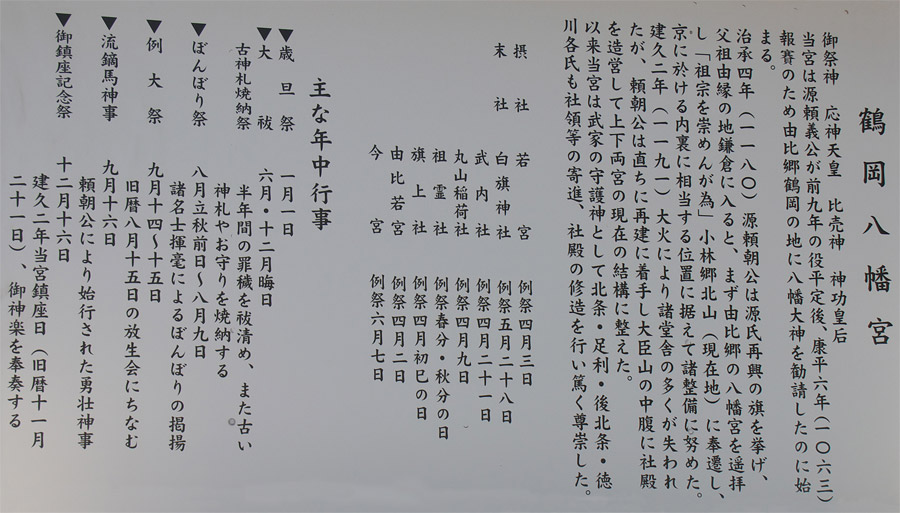 鶴岡八幡宮
御祭神　応神天皇　比売神　神功皇后
当宮は源頼義公が前九年の役平定後、康平六年（一〇六三）
報賽のため由比郷鶴岡の地に八幡大神を勧請したのに始
まる。
治承四年（一一八〇）源頼朝公は源氏再興の旗を挙げ、
父祖由縁の地鎌倉に入ると、まず由比郷の八幡宮を遥拝
し「祖宗を崇めんが為」小林郷北山（現在地）に奉遷し、
京に於ける内裏に相当する位置に据えて諸整備に努めた。
建久二年（一一九一）大火により諸堂舎の多くが失われ
たが、頼朝公は直ちに再建に着手し大臣山の中腹に社殿
を造営して上下両宮の現在の結構に整えた。
以来当宮は武家の守護神として北条・足利・後北条・徳
川各氏も社領等の寄進、社殿の修造を行い篤く尊崇した。
摂社　若宮　例祭四月三日
末社　白旗神社　例祭五月二十八日
武内社　例祭四月二十一日
丸山稲荷社　例祭四月九日
祖霊社　例祭春分・秋分の日
旗上社　例祭四月初巳の日
由比若宮　例祭四月二日
今宮　例祭六月七日
主な年中行事
▼歳旦祭　一月一日
▼大祓　六月・十二月晦日
古神札焼納祭　半年間の罪穢を祓清め、また古い
神札やお守りを焼納する
▼ぼんぼり祭　八月立秋前日～八月九日
諸名士揮毫によるぼんぼりの掲揚
▼例大祭　九月十四～十五日
旧暦八月十五日の放生会にちなむ
▼流鏑馬神事　九月十六日
頼朝公により始行された勇壮神事
▼御鎮座記念祭　十二月十六日
建久二年当宮鎮座日（旧暦十一月
二十一日）、御神楽を奉奏する